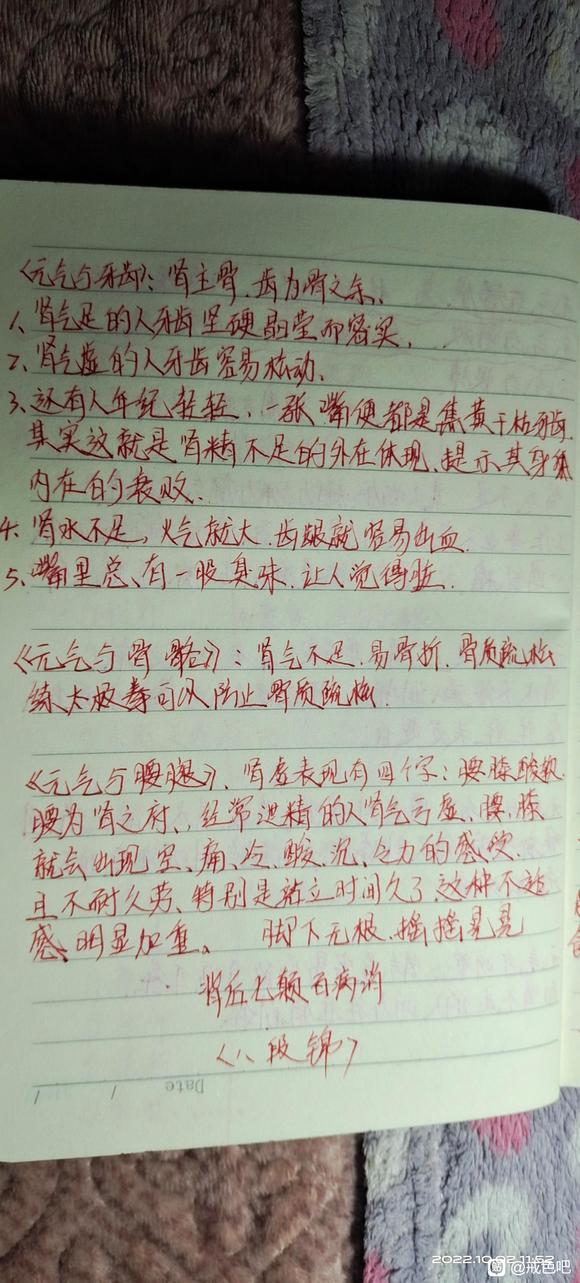 《元气与牙齿》：肾主骨、齿为骨之余、
1、肾气足的人牙齿坚硬晶莹而密实、
2、肾气虚的人牙齿容易松动、
3、还有人年纪轻轻、一张嘴便都是焦黄干枯牙齿
其实这就是肾精不足的外在体现、提示其身体
内在的衰败、
4、肾水不足，火气就大、齿龈就容易出血
5、嘴里总、有一股臭味、让人觉得脏、
《元气与骨骼》：肾气不足、易骨折、骨质疏松
练太极拳可以防止骨质疏松、
《元气与腰腿》、肾虚表现有四个字：腰膝酸软
腰为肾之府、经常泄精的人肾气亏虚、腰、膝
就会出现空、痛、冷、酸、沉、乏力的感觉、
且不耐久劳、特别是站立时间久了、这种不适
感、明显加重。 脚下无根、摇摇晃晃
背后七颠百病消
《八段锦》
Date / /
2022.10.02 11:52
@戒色吧